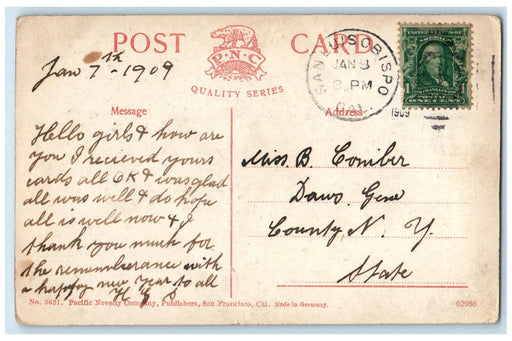 POST CARD
P. N. C
QUALITY SERIES
SAN LUIS OBISPO
JAN 8
3 PM
CAL.
1909
ONE CENT
Jan 7th - 1909
Message
Address
Hello girls & how are
you I recieved yours
cards all OK & was glad
all was well & do hope
all is well now & I
thank you much for
the rememberance with
a happy new Year to all
H G S
Miss B.
Daws, Gene
County N. Y.
State
No. 3621. Pacific Novelty Company, Publishers, San Francisco, Cal. Made in Germany.
62986